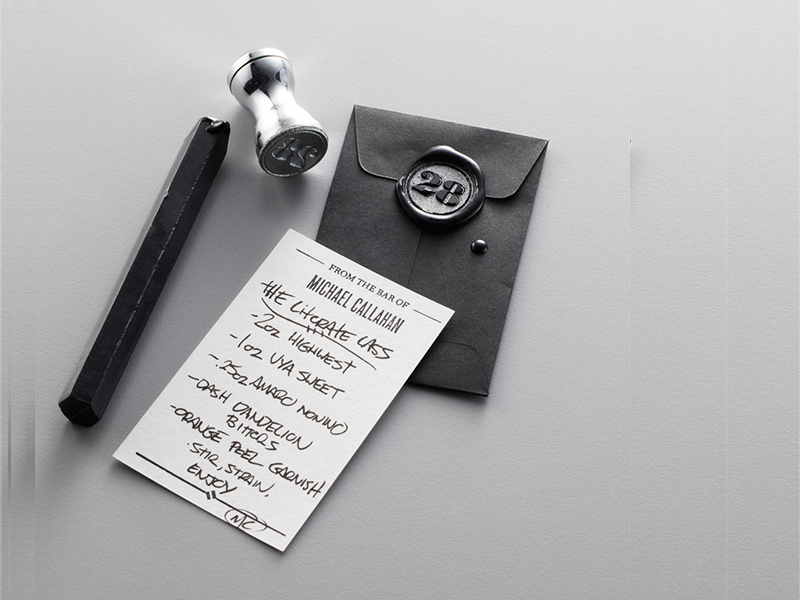 28
28
FROM THE BAR OF
MICHAEL CALLAHAN
THE LITERATE LASS
-2oz HIGHWEST
-1oz UYA SWEET
-.25oz AMARO NONINO
-DASH DANDELION
BITTERS
-ORANGE PEEL GARNISH
·STIR, STRAIN,
ENJOY
MC